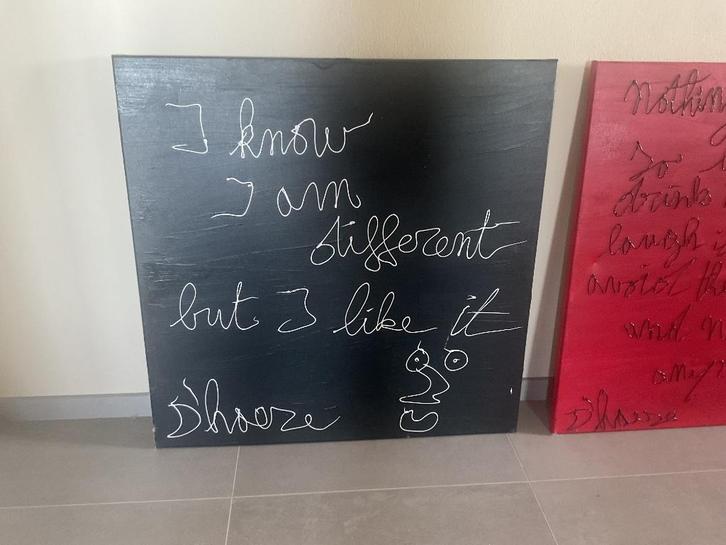 I know
I am
different
but I like it
D'haese
Nothin
To
drink
laugh
avoid the
and n
any
D'haese